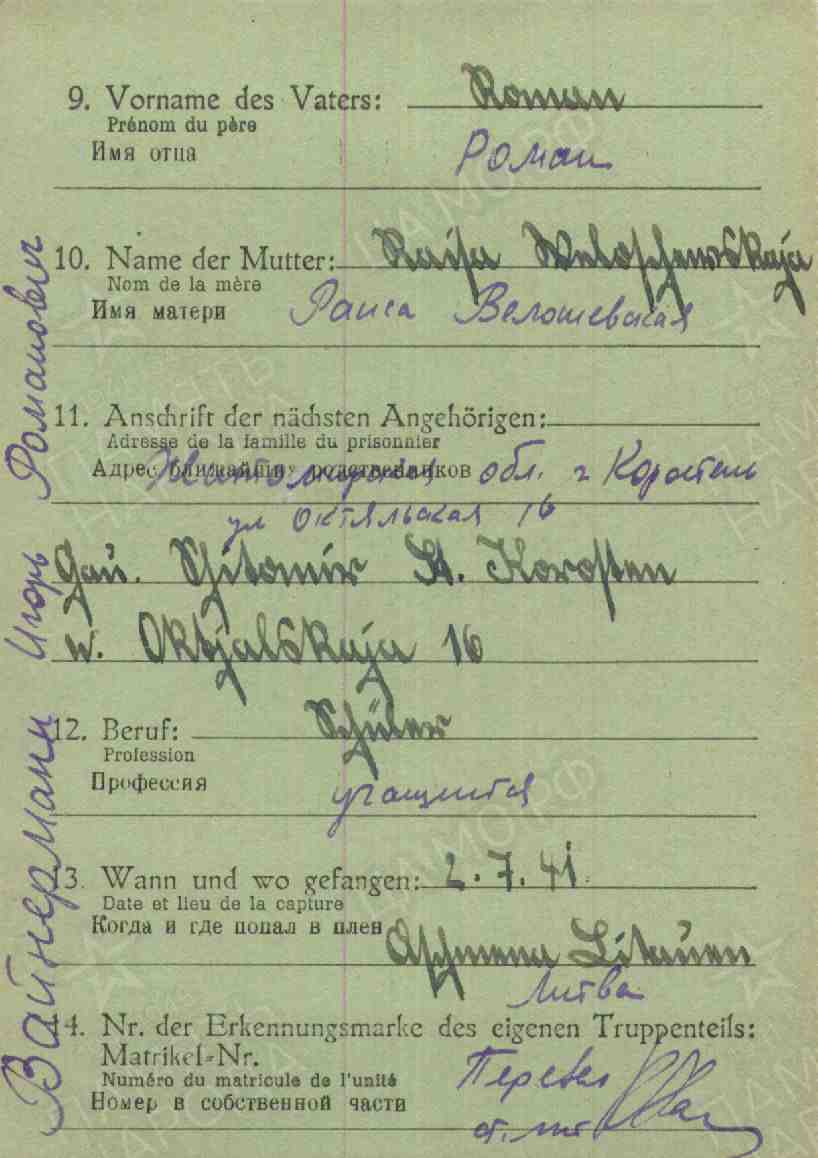 9. Vorname des Vaters: Roman
Prénom du père
Имя отца Роман
10. Name der Mutter: Raisa Weloschewskaja
Nom de la mère
Имя матери Раиса Велошевская
11. Anschrift der nächsten Angehörigen:
Adresse de la famille du prisonnier
Адрес ближайших родственников
Житомирская обл. г Коростень
ул Октяльская 16
Gau. Schitomir St. Korosten
u. Oktjalskaja 16
12. Beruf: Schüler
Profession
Профессия учащийся
13. Wann und wo gefangen: 2.7.41.
Date et lieu de la capture
Когда и где попал в плен
Aschmena Litauen
Литва
14. Nr. der Erkennungsmarke des eigenen Truppenteils:
Matrikel-Nr.
Numéro du matricule de l'unité
Номер в собственной части
Перевел
ст. лит
Вайнерманн Игорь Романович